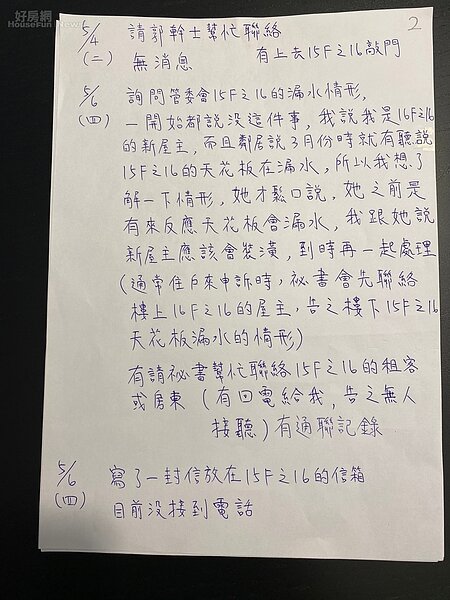 好房網
HouseFun News
2
5/4 請郭幹士幫忙聯絡
(二) 無消息 有上去15F之16敲門
5/6 詢問管委會15F之16的漏水情形,
(四) 一開始都說没這件事,我說我是16F之16
的新屋主,而且鄰居說3月份時就有聽說
15F之16的天花板在漏水,所以我想了
解一下情形,她才鬆口說,她之前是
有來反應天花板會漏水,我跟她說
新屋主應該會裝潢,到時再一起處理
(通常住戶來申訴時,祕書會先聯絡
樓上16F之16的屋主,告之樓下15F之16
天花板漏水的情形)
有請祕書幫忙聯絡15F之16的租客
或房東(有回電給我,告之無人
接聽)有通聯記錄
5/6 寫了一封信放在15F之16的信箱
(四) 目前没接到電話